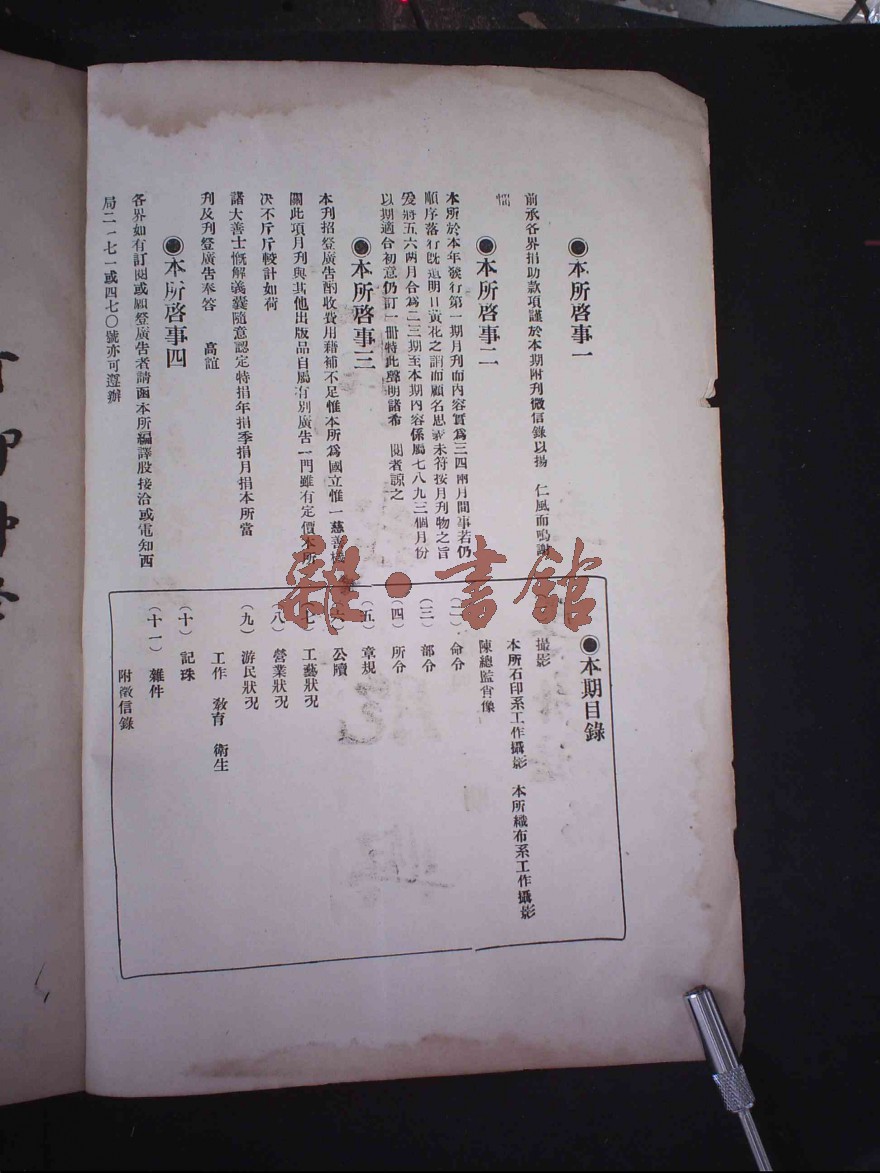 ●本所啓事一
前承各界捐助款項謹於本期附刋徵信錄以揚　仁風而鳴謝
悃
●本所啓事二
本所於本年發行第一期月刋而內容實爲三四兩月間事若仍
順序落行旣遭明日黃花之誚而顧名思義未符按月刋物之旨
爰將五六两月合爲二三期至本期內容係屬七八九三個月份
以期適合初意仍訂一册特此聲明諸希　閱者諒之
●本所啓事三
本刋招登廣告酌收費用藉補不足惟本所爲國立惟一慈善機
關此項月刋與其他出版品自屬有別廣告一門雖有定價本所
決不斤斤較計如荷
諸大善士慨解義囊隨意認定特捐年捐季捐月捐本所當
刋及刋登廣告奉答　高誼
●本所啓事四
各界如有訂閱或願登廣告者請函本所編譯股接洽或電知西
局二一七一或四七〇號亦可遵辦
●本期目錄
撮影
本所石印系工作攝影　本所織布系工作攝影
陳總監肖像
（二）　命令
（三）　部令
（四）　所令
（五）　章規
（六）　公牘
（七）　工藝狀况
（八）　營業狀况
（九）　游民狀况
工作　敎育　衛生
（十）　記珠
（十一）　雜件
附徵信錄
雜·書館